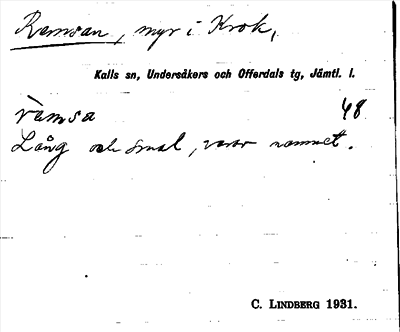 Remsan, myr i Krok,
Kalls sn, Undersåkers och Offerdals tg, Jämtl. l.
ræ̀msa 48
Lång och smal, varav namnet.
C. LINDBERG 1931.